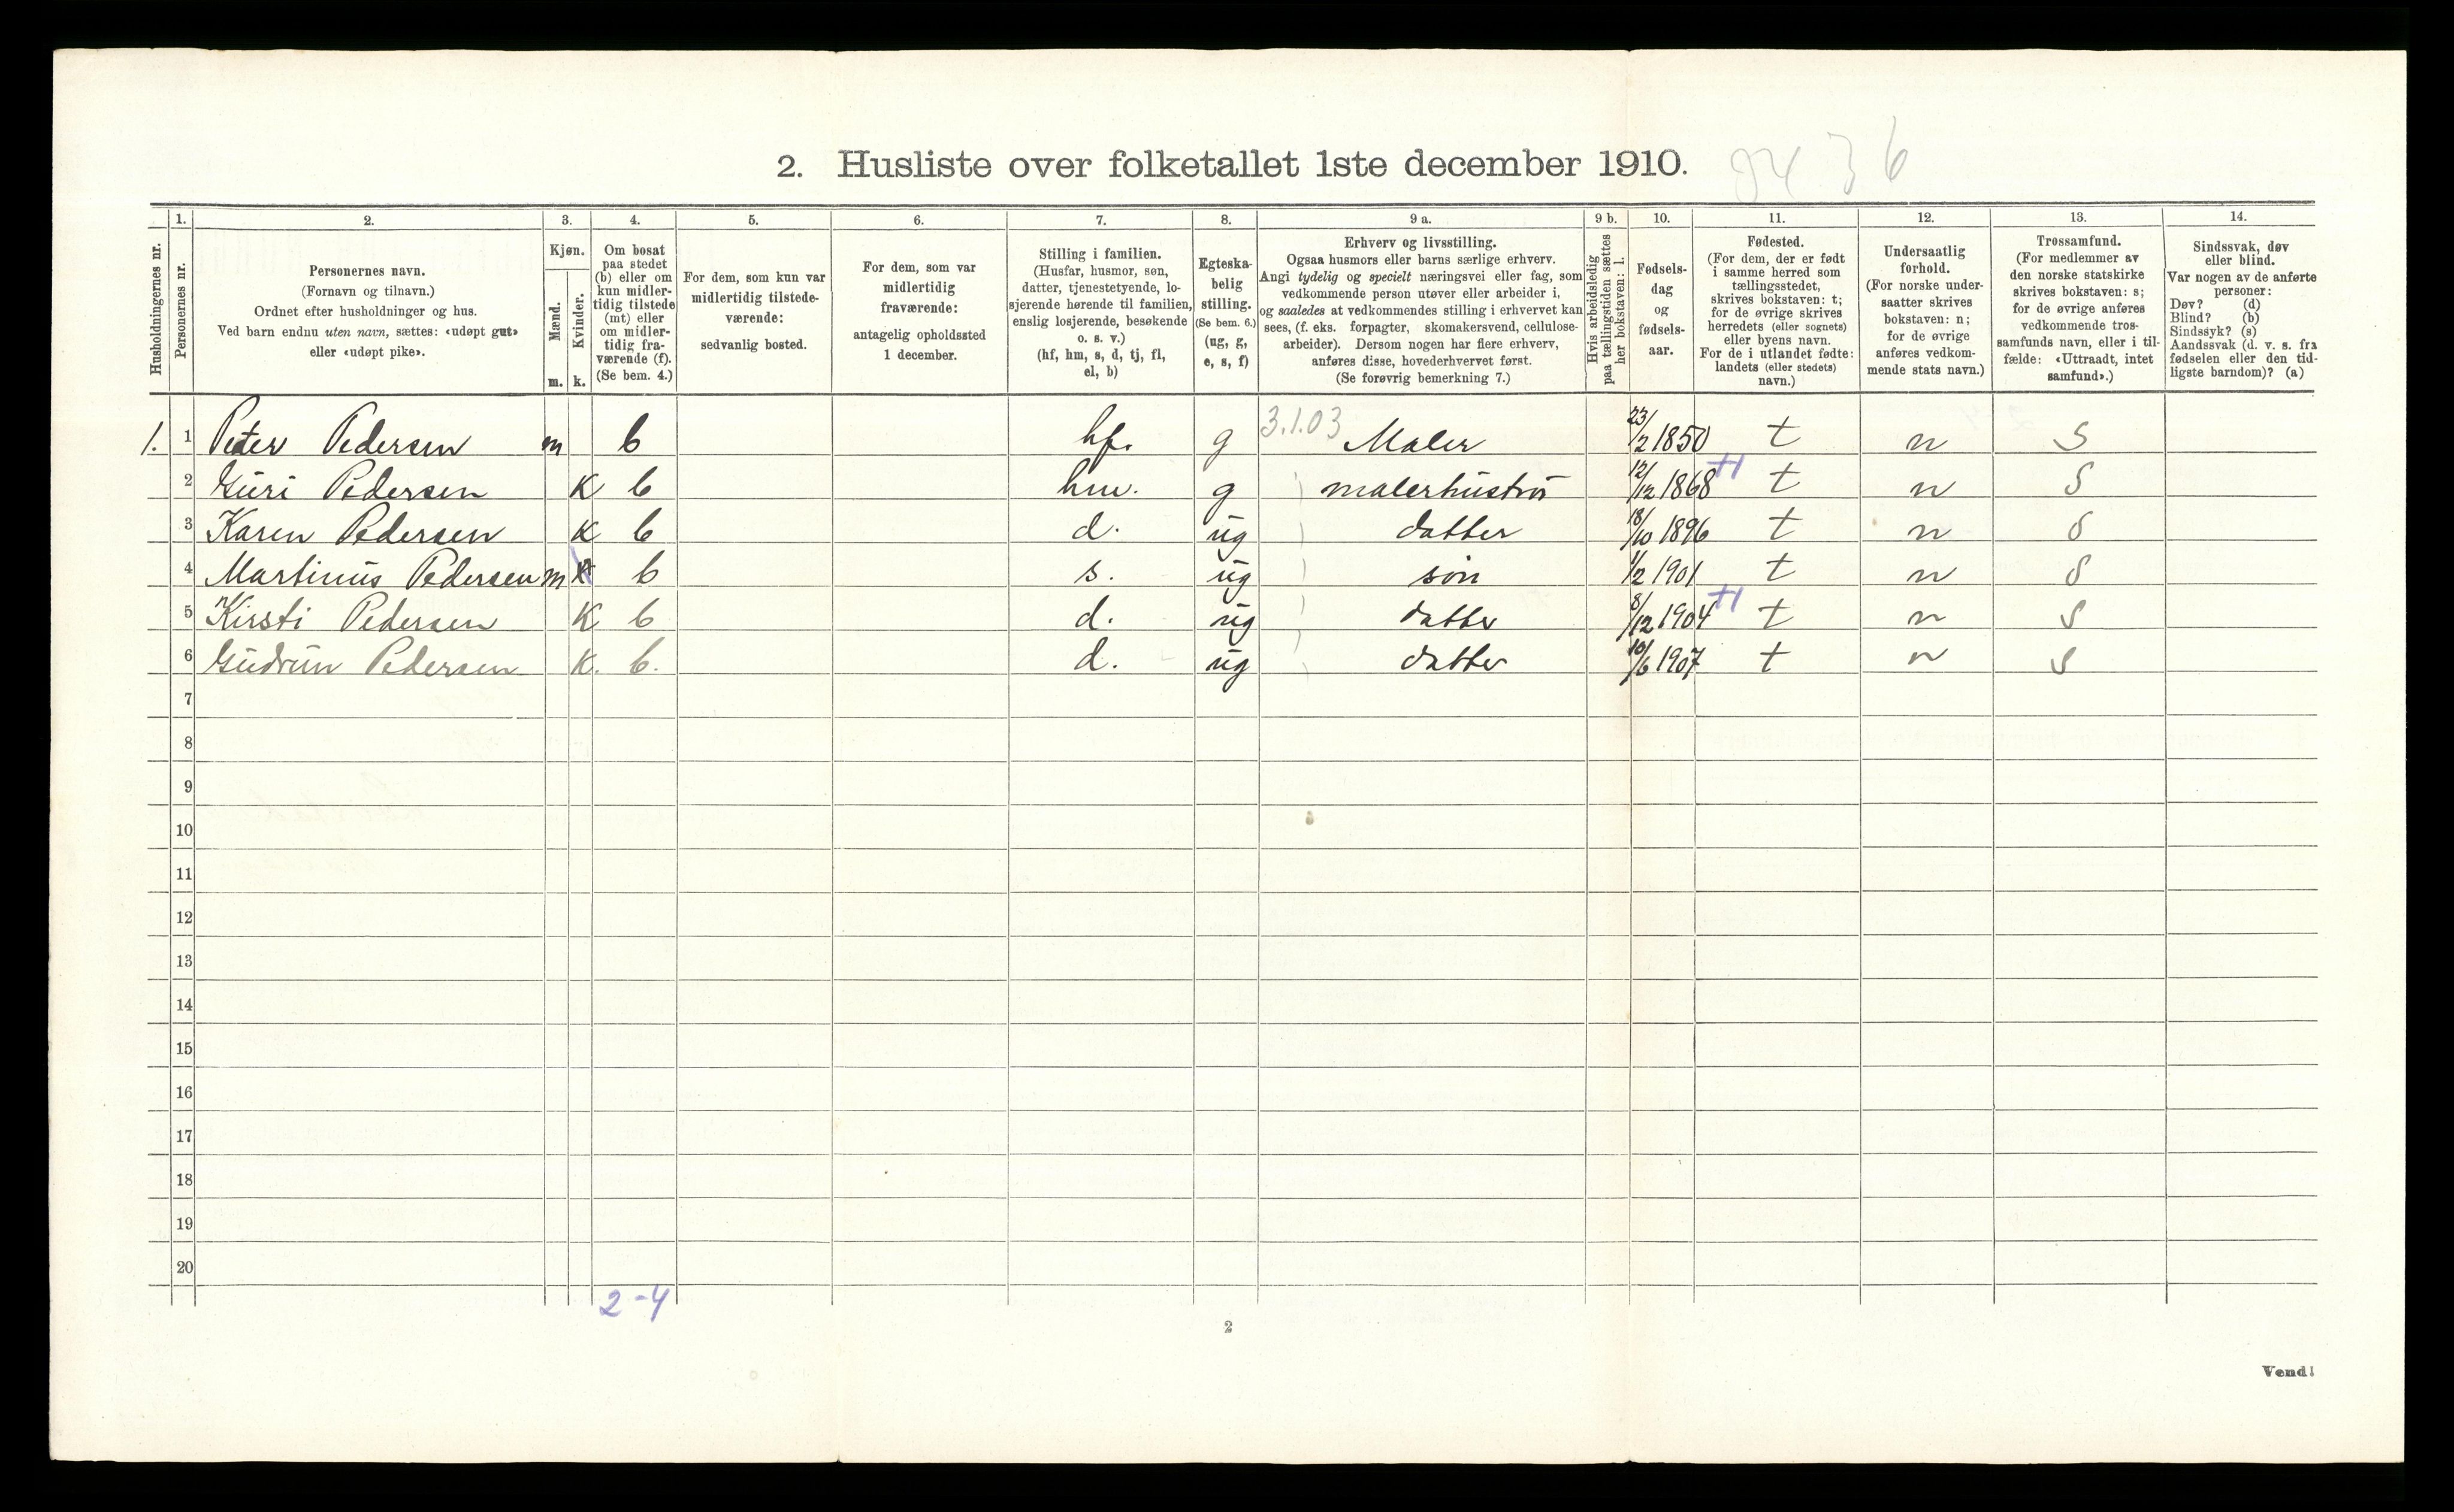 2. Husliste over folketallet 1ste december 1910.
1. 2. 3. 4. 5. 6. 7. 8. 9 a. 9 b. 10. 11. 12. 13. 14.
Husholdningernes nr.
Personernes nr.
Personernes navn.
(Fornavn og tilnavn.)
Ordnet efter husholdninger og hus.
Ved barn endnu uten navn, sættes: «udøpt gut»
eller «udøpt pike».
Kjøn.
Mænd.
Kvinder.
m. k.
Om bosat
paa stedet
(b) eller om
kun midler-
tidig tilstede
(mt) eller
om midler-
tidig fra-
værende (f).
(Se bem. 4.)
For dem, som kun var
midlertidig tilstede-
værende:
sedvanlig bosted.
For dem, som var
midlertidig
fraværende:
antagelig opholdssted
1 december.
Stilling i familien.
(Husfar, husmor, søn,
datter, tjenestetyende, lo-
sjerende hørende til familien,
enslig losjerende, besøkende
o. s. v.)
(hf, hm, s, d, tj, fl,
el, b)
Egteska-
belig
stilling.
(Se bem. 6.)
(ug, g,
e, s, f)
Erhverv og livsstilling.
Ogsaa husmors eller barns særlige erhverv.
Angi tydelig og specielt næringsvei eller fag, som
vedkommende person utøver eller arbeider i,
og saaledes at vedkommendes stilling i erhvervet kan
sees, (f. eks. forpagter, skomakersvend, cellulose-
arbeider). Dersom nogen har flere erhverv,
anføres disse, hovederhvervet først.
(Se forøvrig bemerkning 7.)
Hvis arbeidsledig
paa tællingstiden sættes
her bokstaven: l.
Fødsels-
dag
og
fødsels-
aar.
Fødested.
(For dem, der er født
i samme herred som
tællingsstedet,
skrives bokstaven: t;
for de øvrige skrives
herredets (eller sognets)
eller byens navn.
For de i utlandet fødte:
landets (eller stedets)
navn.)
Undersaatlig
forhold.
(For norske under-
saatter skrives
bokstaven: n;
for de øvrige
anføres vedkom-
mende stats navn.)
Trossamfund.
(For medlemmer av
den norske statskirke
skrives bokstaven: s;
for de øvrige anføres
vedkommende tros-
samfunds navn, eller i til-
fælde: «Uttraadt, intet
samfund».)
Sindssvak, døv
eller blind.
Var nogen av de anførte
personer:
Døv? (d)
Blind? (b)
Sindssyk? (s)
Aandssvak (d. v. s. fra
fødselen eller den tid-
ligste barndom)? (a)
1. 1 Peter Pedersen m b hf. g 3.1.03 Maler 23/2 1850 t n s
2 Guri Pedersen k b hm. g malerhustru 12/12 1868 t n s
3 Karen Pedersen k b d. ug datter 18/10 1896 t n s
4 Martinus Pedersen m b s. ug søn 1/2 1901 t n s
5 Kirsti Pedersen k b d. ug datter 8/12 1904 t n s
6 Gudrun Pedersen k. b. d. ug datter 10/6 1907 t n s
7
8
9
10
11
12
13
14
15
16
17
18
19
20
2-4
2
Vend!